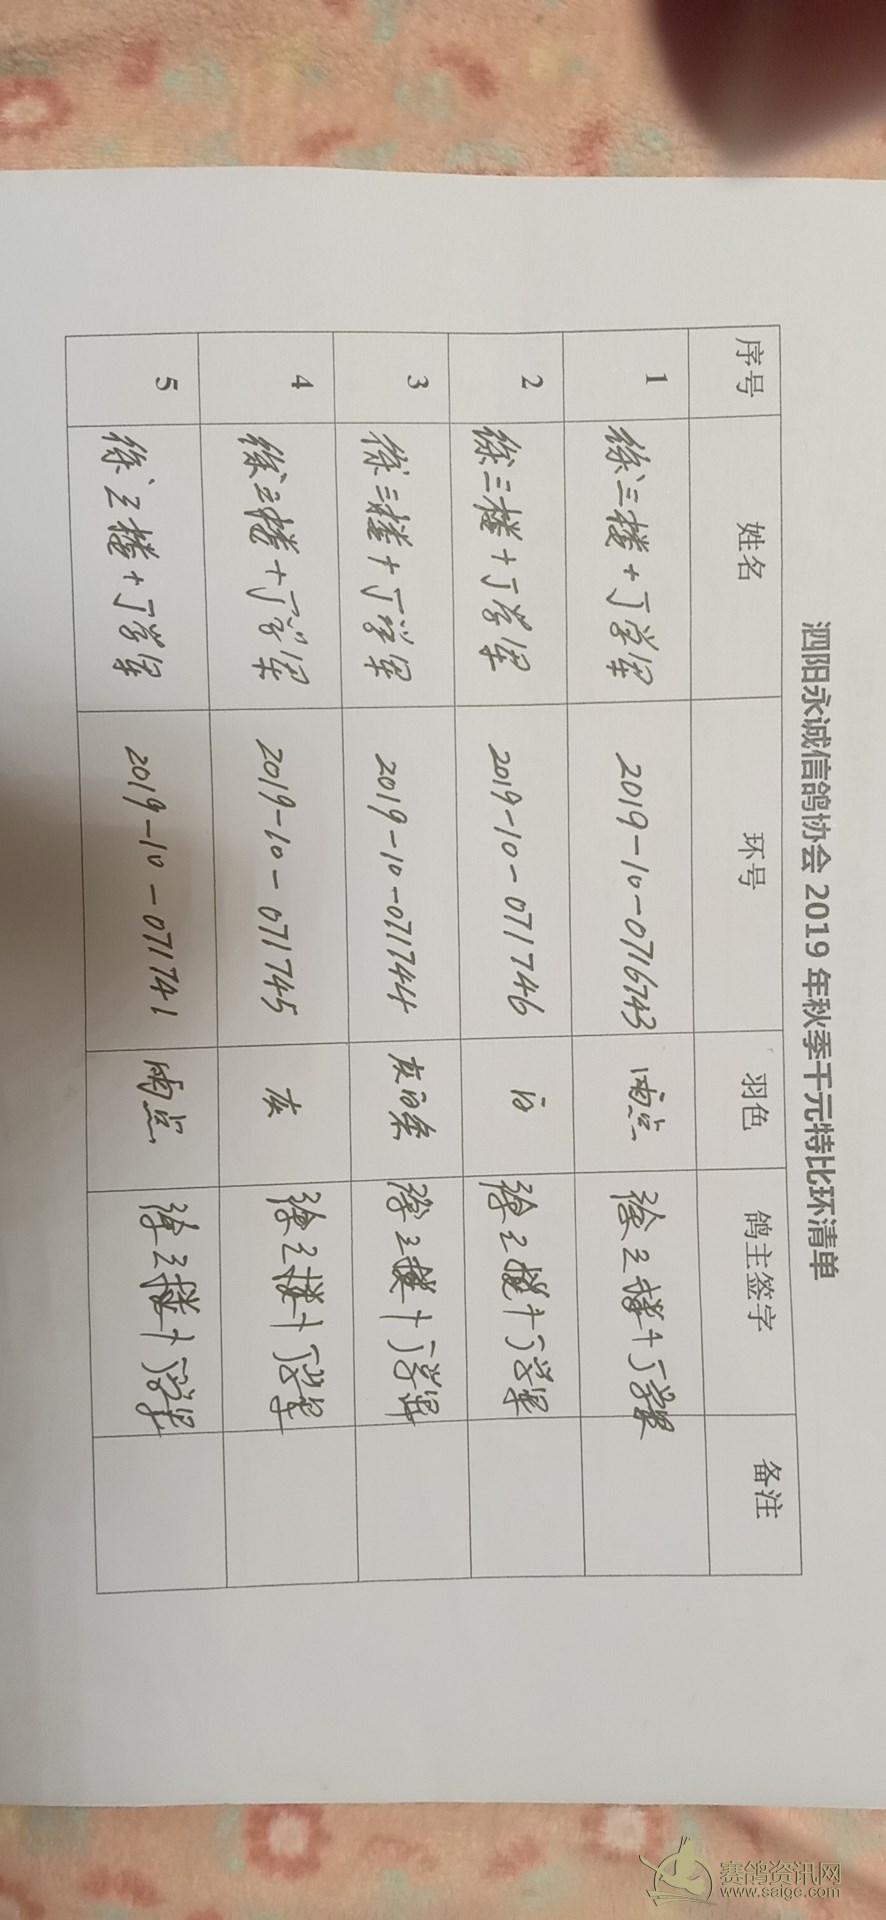 泗阳永诚信鸽协会 2019 年秋季千元特比环清单
序号 姓名 环号 羽色 鸽主签字 备注
1 徐三楼+丁学军 2019-10-0716743 雨点 徐三楼+丁学军
2 徐三楼+丁学军 2019-10-071746 白 徐三楼+丁学军
3 徐三楼+丁学军 2019-10-071744 灰白条 徐三楼+丁学军
4 徐三楼+丁学军 2019-10-071745 灰 徐三楼+丁学军
5 徐三楼+丁学军 2019-10-071741 雨点 徐三楼+丁学军
赛鸽资讯网
www.saigc.com